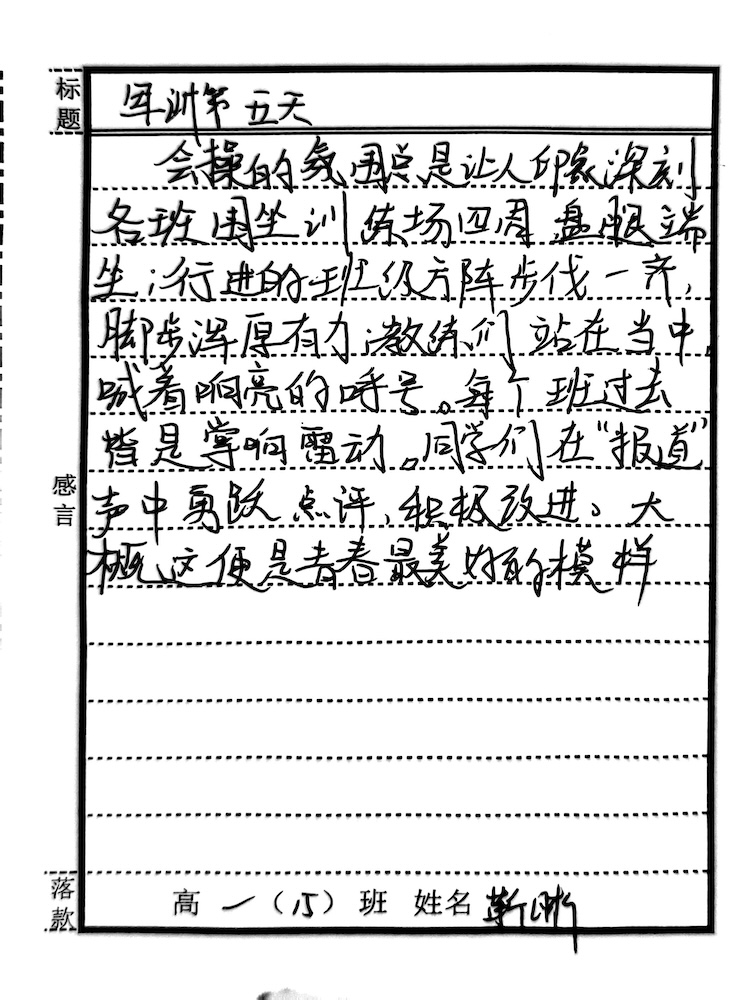 标题
军训第五天
会操的氛围总是让人印象深刻
各班围坐训练场四周盘腿端
坐;行进的班级方阵步伐一齐,
脚步浑厚有力;教练们站在当中,
喊着响亮的呼号。每个班过去
皆是掌响雷动。同学们在“报道”
声中勇跃点评,积极改进。大
概这便是青春最美好的模样
感言
落款
高一(15)班 姓名 靳晰